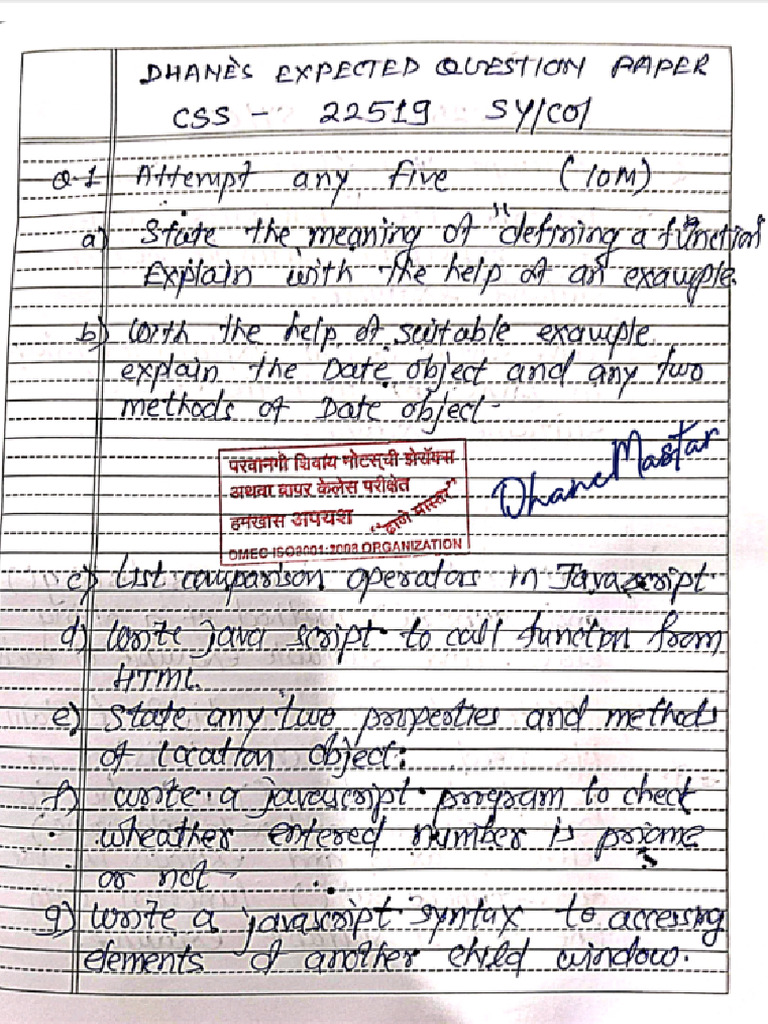 DHANE'S EXPECTED QUESTION PAPER
CSS - 22519 SY/CO/
Q.1 Attempt any five (10M)
a) State the meaning of "defining a function
Explain with the help of an example.
b) With the help of suitable example
explain the Date object and any two
methods of Date object-
परवानगी शिवाय नोटस्ची झेरॉक्स
अथवा वापर केलेस परीक्षेत
हमखास अपयश "ढाणे मास्तर"
DMEC ISO9001:2008 ORGANIZATION
Dhane Mastar
c) List comparison operators in Javascript
d) Write java script to call function from
HTML.
e) State any two properties and methods
of location object:
f) write a javascript program to check
wheather entered number is priome
or not -
g) Write a javascript syntax to accessing
elements of another child window.